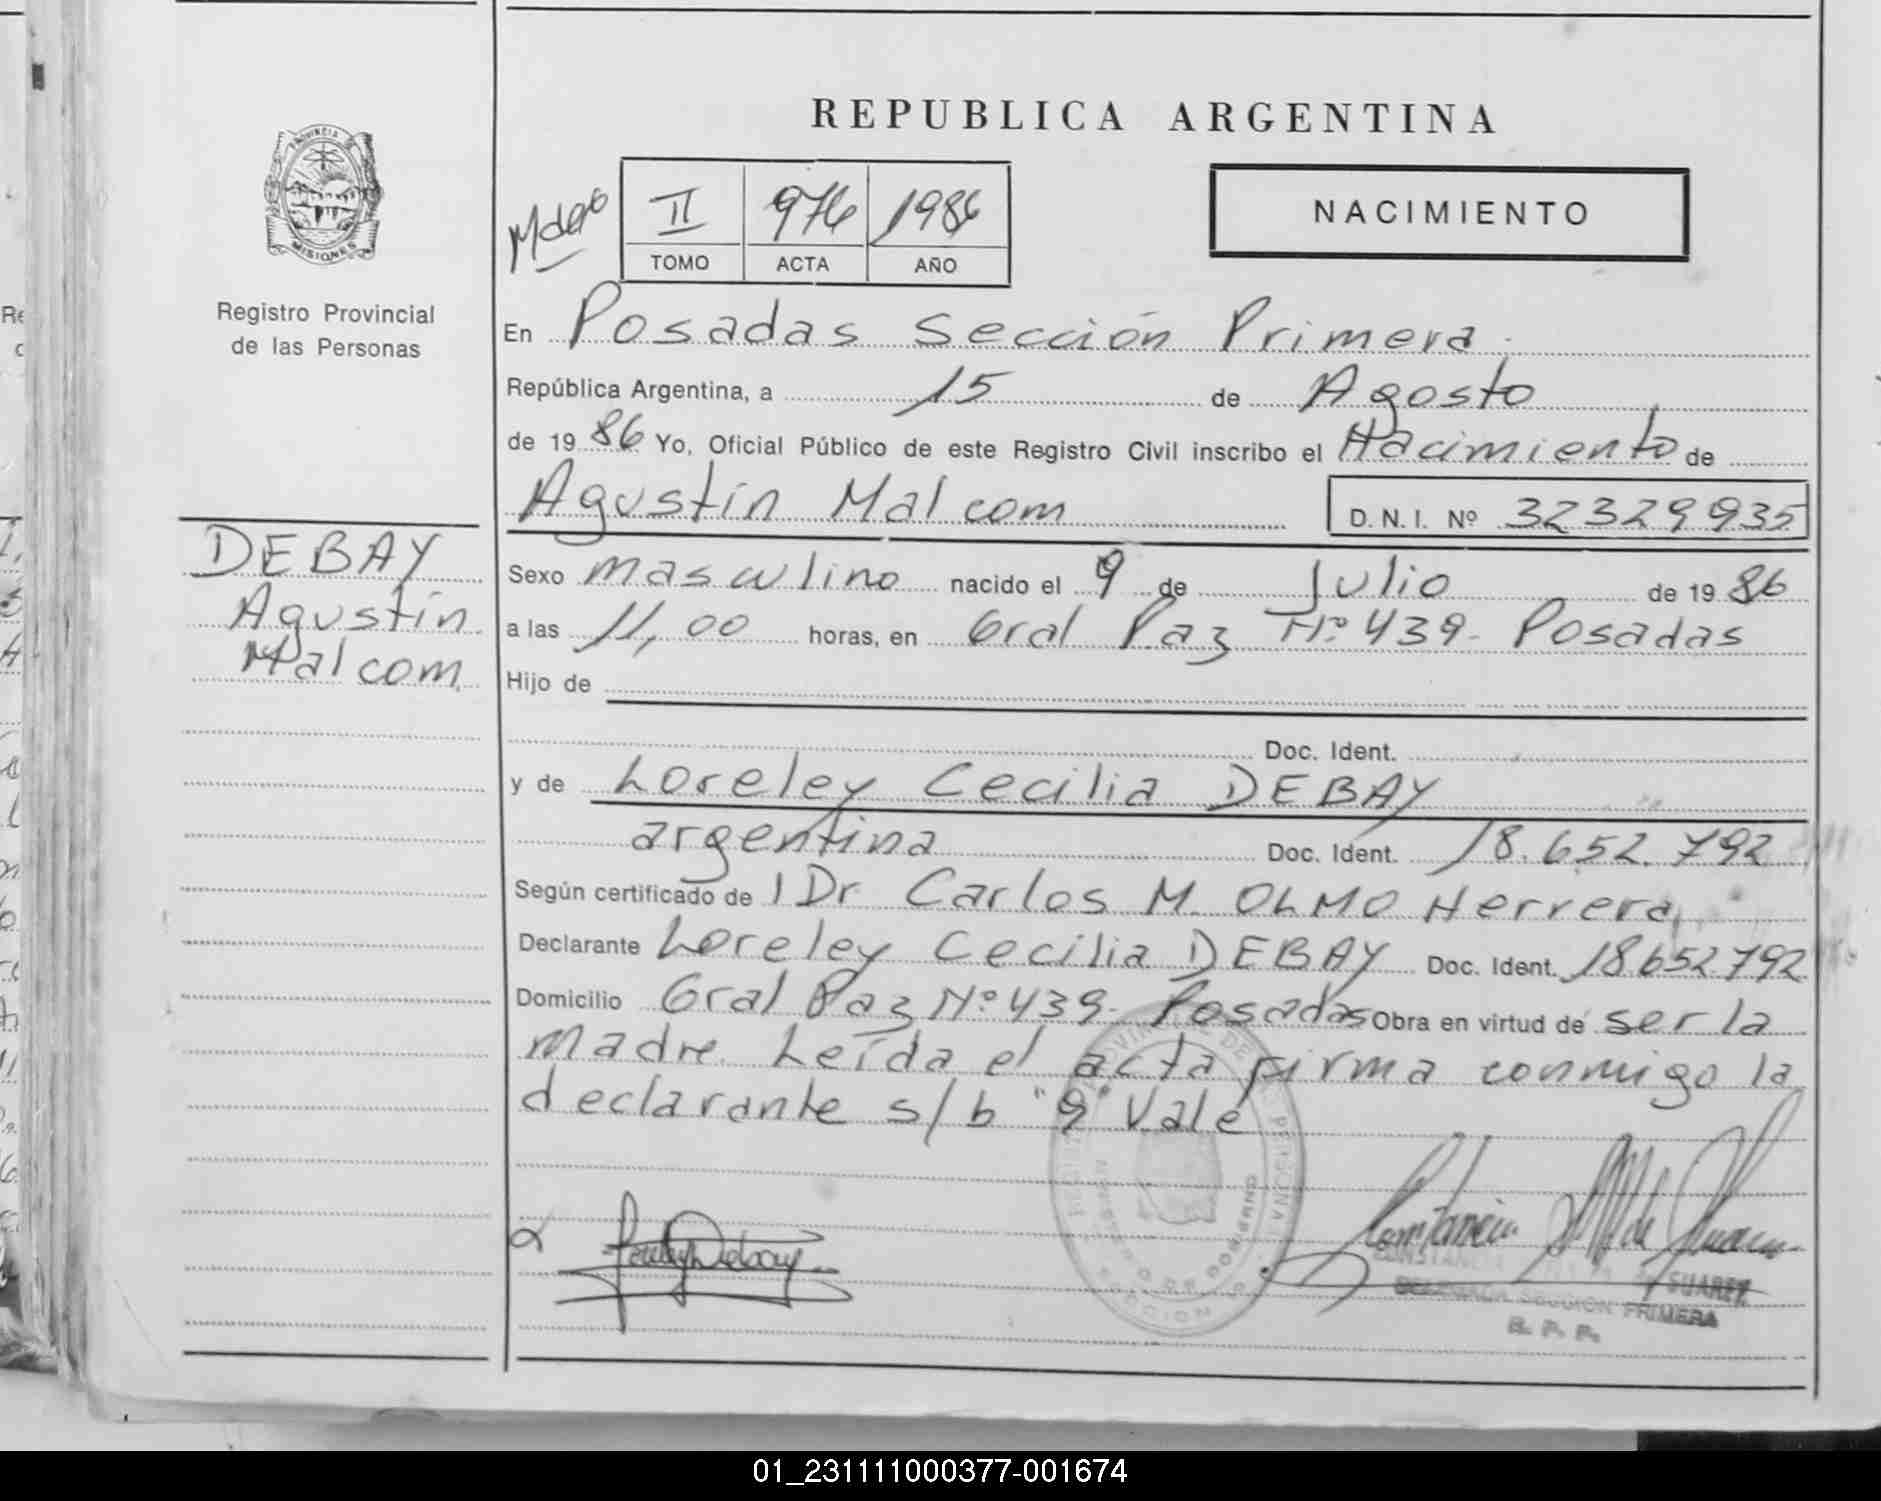 REPUBLICA ARGENTINA
PROVINCIA
MISIONES
Registro Provincial
de las Personas
II 976 1986
TOMO ACTA AÑO
NACIMIENTO
En Posadas Sección Primera
República Argentina, a 15 de Agosto
de 1986 Yo, Oficial Público de este Registro Civil inscribo el Nacimiento de
Agustín Malcom D.N.I. Nº 32329935
DEBAY
Agustín
Malcom
Sexo masculino nacido el 9 de Julio de 1986
a las 11,00 horas, en Gral Paz Nº 439- Posadas
Hijo de
Doc. Ident.
y de Loreley Cecilia DEBAY
argentina Doc. Ident. 18.652.792
Según certificado de 1 Dr Carlos M. OLMO Herrera
Declarante Loreley Cecilia DEBAY Doc. Ident. 18652792
Domicilio Gral Paz Nº 439- Posadas Obra en virtud de ser la
madre. Leída el acta firma conmigo la
declarante s/b "9" Vale
SUAREZ
DELEGADA SECCION PRIMERA
R. P. P.
01_231111000377-001674